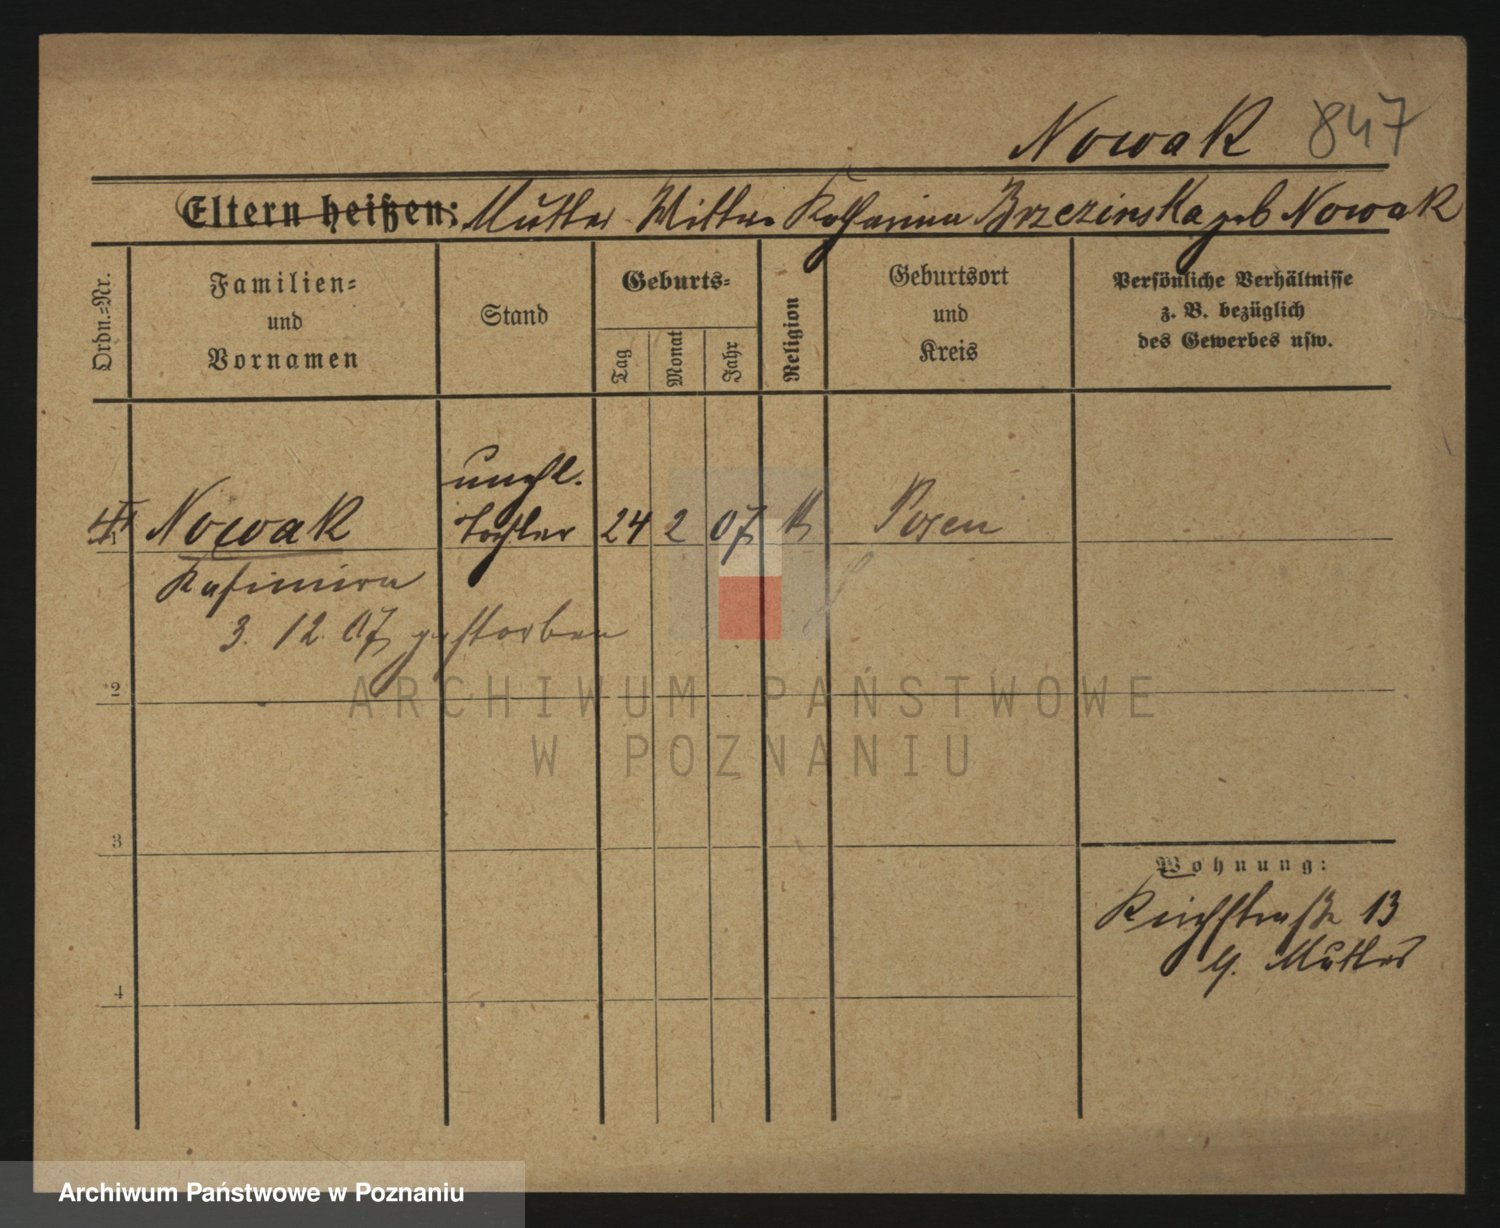 Nowak 847
Eltern heißen: Mutter Wittwe Katharina Brzezinska geb Nowak
Ordn.=Nr.
Familien=
und
Vornamen
Stand
Geburts=
Tag
Monat
Jahr
Religion
Geburtsort
und
Kreis
Persönliche Verhältnisse
z. B. bezüglich
des Gewerbes usw.
unehl.
Nowak Tochter 24 2 07 k Posen
Kasimira
3. 12. 07 gestorben
2
3
4
Wohnung:
13
b. Mutter
ARCHIWUM PAŃSTWOWE
W POZNANIU
Archiwum Państwowe w Poznaniu